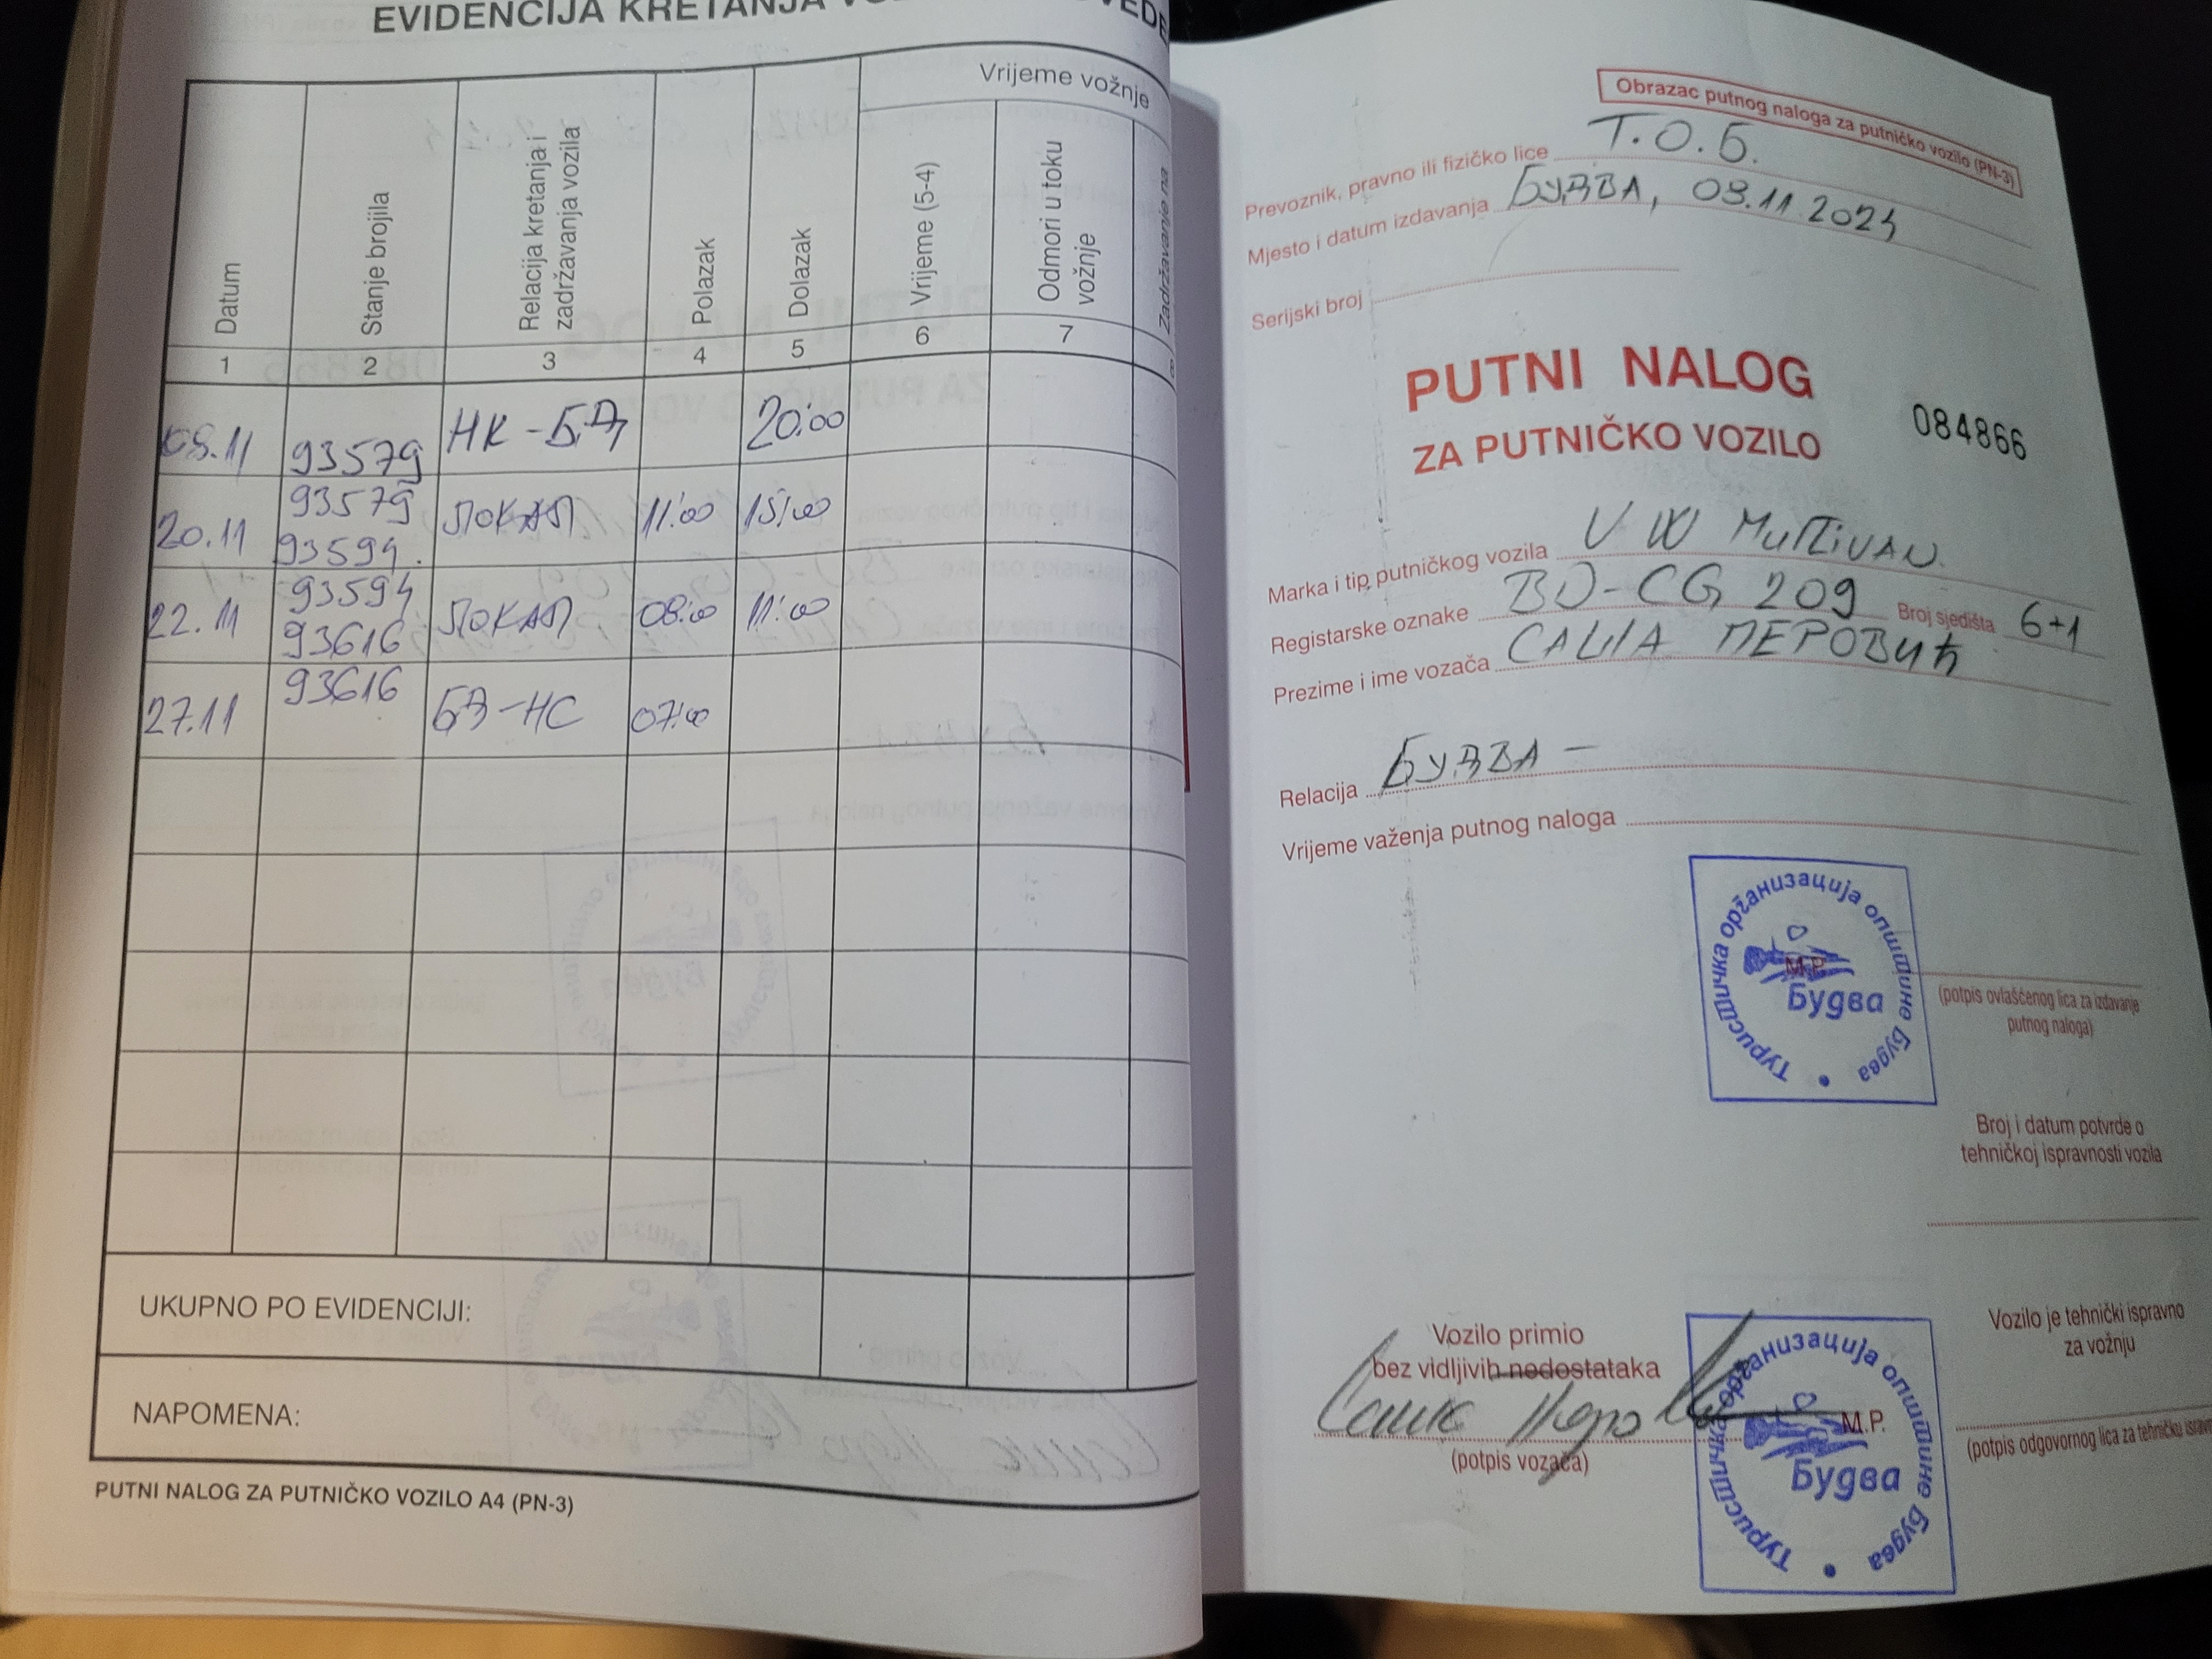 EVIDENCIJA KRETANJA
Vrijeme vožnje
Datum
Stanje brojila
Relacija kretanja i
zadržavanja vozila
Polazak
Dolazak
Vrijeme (5-4)
Odmori u toku
vožnje
Zadržavanje na
1 2 3 4 5 6 7 8
08.11 93579 НК-БД 20:00
20.11 93579 ЛОКАЛ 11:00 15:00
93594.
22.11 93594 ЛОКАЛ 08:00 11:00
93616
27.11 93616 БД-НС 07:00
UKUPNO PO EVIDENCIJI:
NAPOMENA:
PUTNI NALOG ZA PUTNIČKO VOZILO A4 (PN-3)
Obrazac putnog naloga za putničko vozilo (PN-3)
Prevoznik, pravno ili fizičko lice Т.О.Б.
Mjesto i datum izdavanja БУДВА, 08.11.2024
Serijski broj
PUTNI NALOG
ZA PUTNIČKO VOZILO
084866
Marka i tip putničkog vozila VW MULTIVAN
Registarske oznake BD-CG 209 Broj sjedišta 6+1
Prezime i ime vozača САША ПЕРОВИЋ
Relacija БУДВА -
Vrijeme važenja putnog naloga
Туристичка организација општине Будва
М.Р.
Будва
(potpis ovlašćenog lica za izdavanje
putnog naloga)
Broj i datum potvrde o
tehničkoj ispravnosti vozila
Vozilo primio
bez vidljivih nedostataka
(potpis vozača)
Туристичка организација општине Будва
M.P.
Будва
Vozilo je tehnički ispravno
za vožnju
(potpis odgovornog lica za tehničku